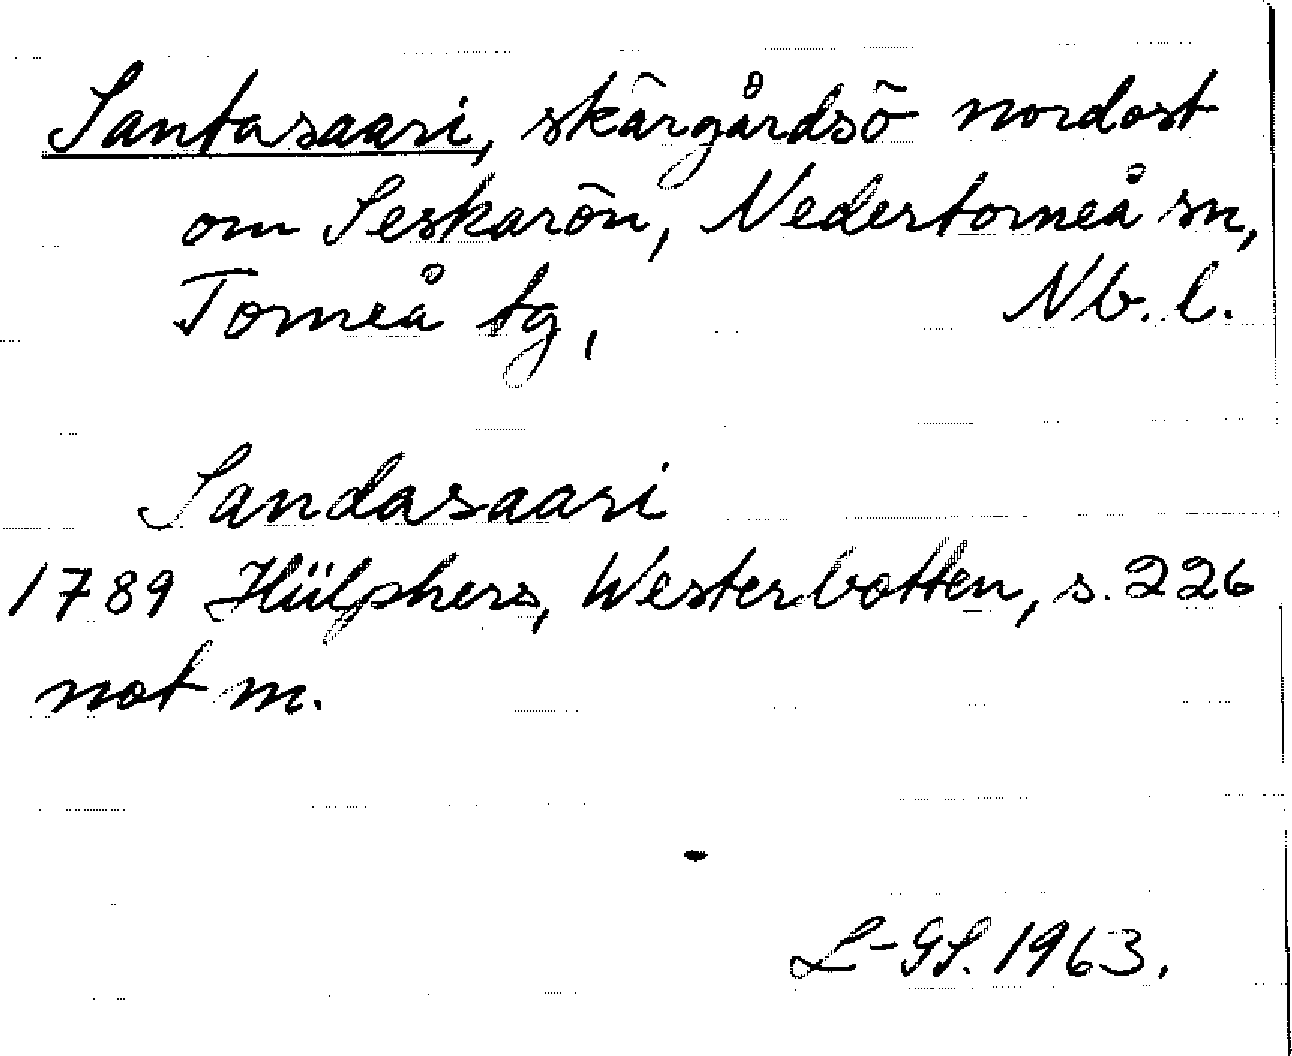 Santasaari, skärgårdsö nordost
om Seskarön, Nedertorneå sn,
Torneå tg, Nb. l.
Sandasaari
1789 Hülphers, Westerbotten, s. 226
not m.
L-GS. 1963.